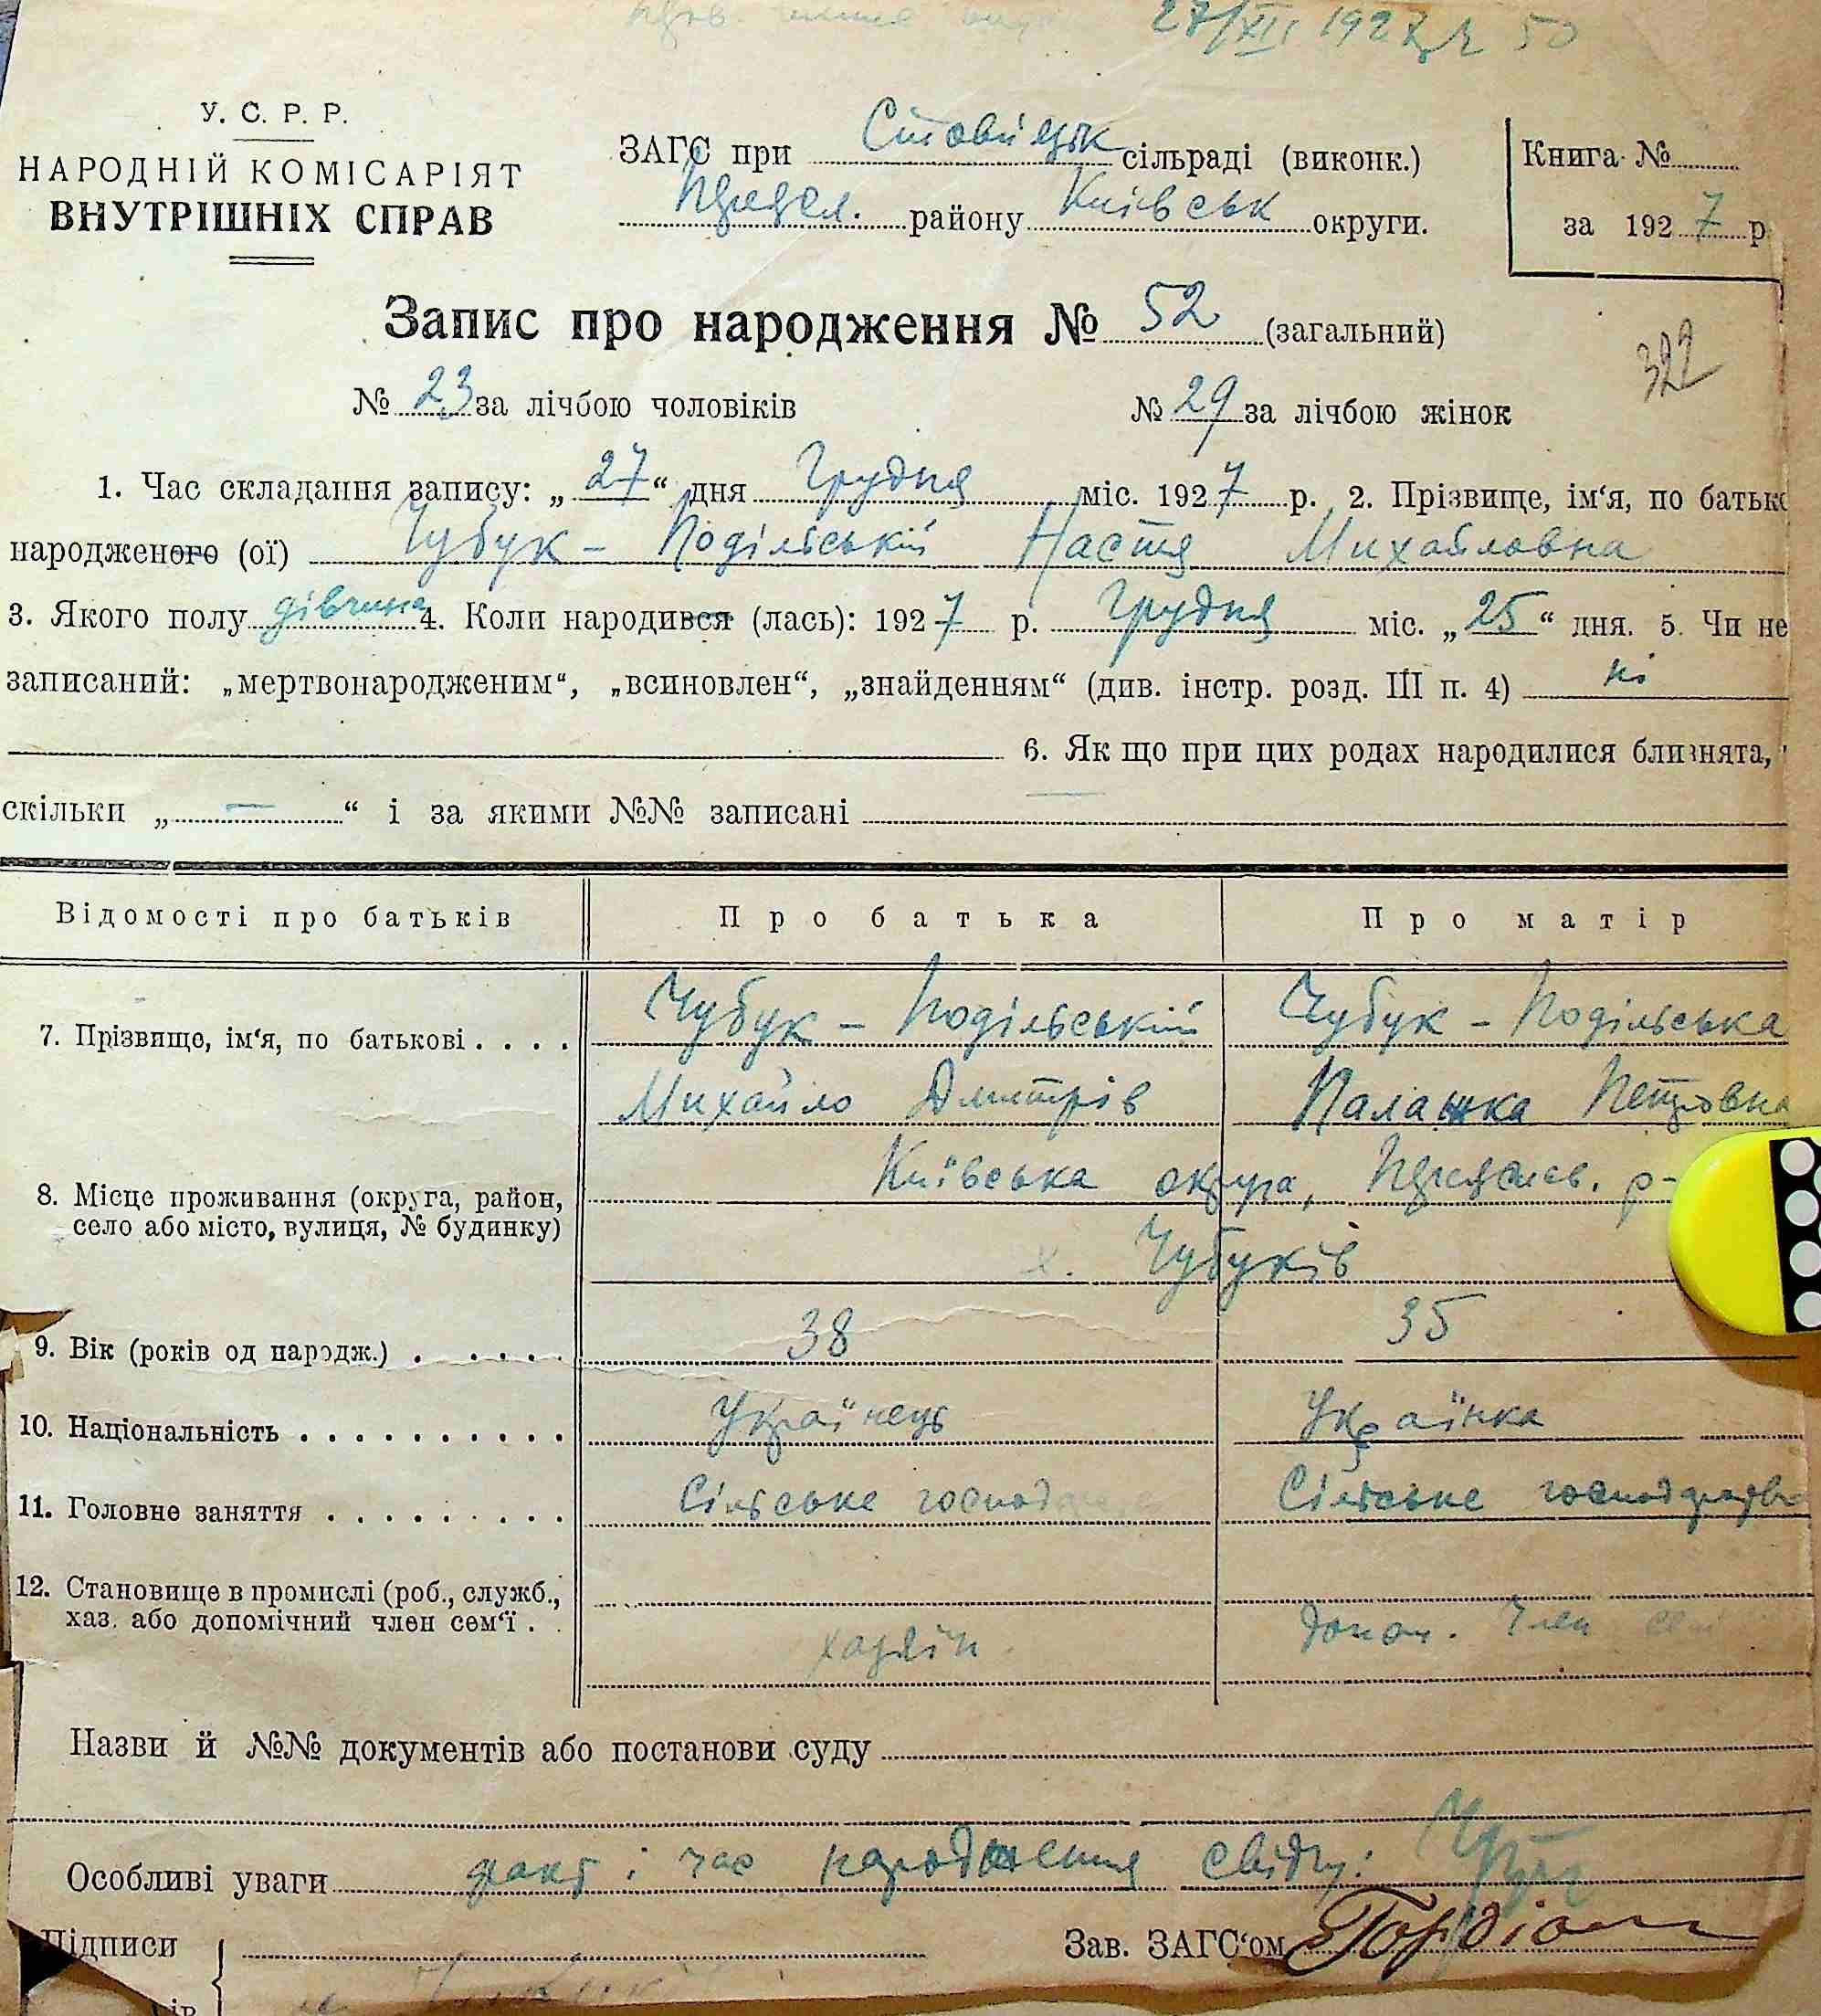 27/XII 1927 р 50
У. С. Р. Р.
НАРОДНІЙ КОМІСАРІЯТ
ВНУТРІШНІХ СПРАВ
ЗАГС при Стовп'яцьк сільраді (виконк.)
району Київськ округи.
Книга №
за 1927 р
Запис про народження № 52 (загальний)
322
№ 23 за лічбою чоловіків № 29 за лічбою жінок
1. Час складання запису: „27“ дня Грудня міс. 1927 р. 2. Прізвище, ім‘я, по батько
народженого (ої) Чубук – Подільській Настя Михайловна
3. Якого полу дівчина 4. Коли народився (лась): 1927 р. Грудня міс. „25“ дня. 5. Чи не
записаний: „мертвонародженим“, „всиновлен“, „знайденням“ (див. інстр. розд. III п. 4) ні
6. Як що при цих родах народилися близнята,
скільки „ — “ і за якими №№ записані —
Відомості про батьків Про батька Про матір
7. Прізвище, ім‘я, по батькові . . . . Чубук – Подільській Чубук – Подільська
Михайло Дмитрів Палажка Петровна
8. Місце проживання (округа, район,
село або місто, вулиця, № будинку)
Київська округа, р-
х. Чубуків
9. Вік (років од народж.) . . . . . 38 35
10. Національність . . . . . . . . . . Українець Українка
11. Головне заняття . . . . . . . . . Сільське господ Сільське господарство
12. Становище в промислі (роб., служб.,
хаз. або допомічний член сем‘ї . .
хазяїн допом. член сем
Назви й №№ документів або постанови суду
Особливі уваги факт і час народження свідчу:
Підписи Зав. ЗАГС‘ом
ів